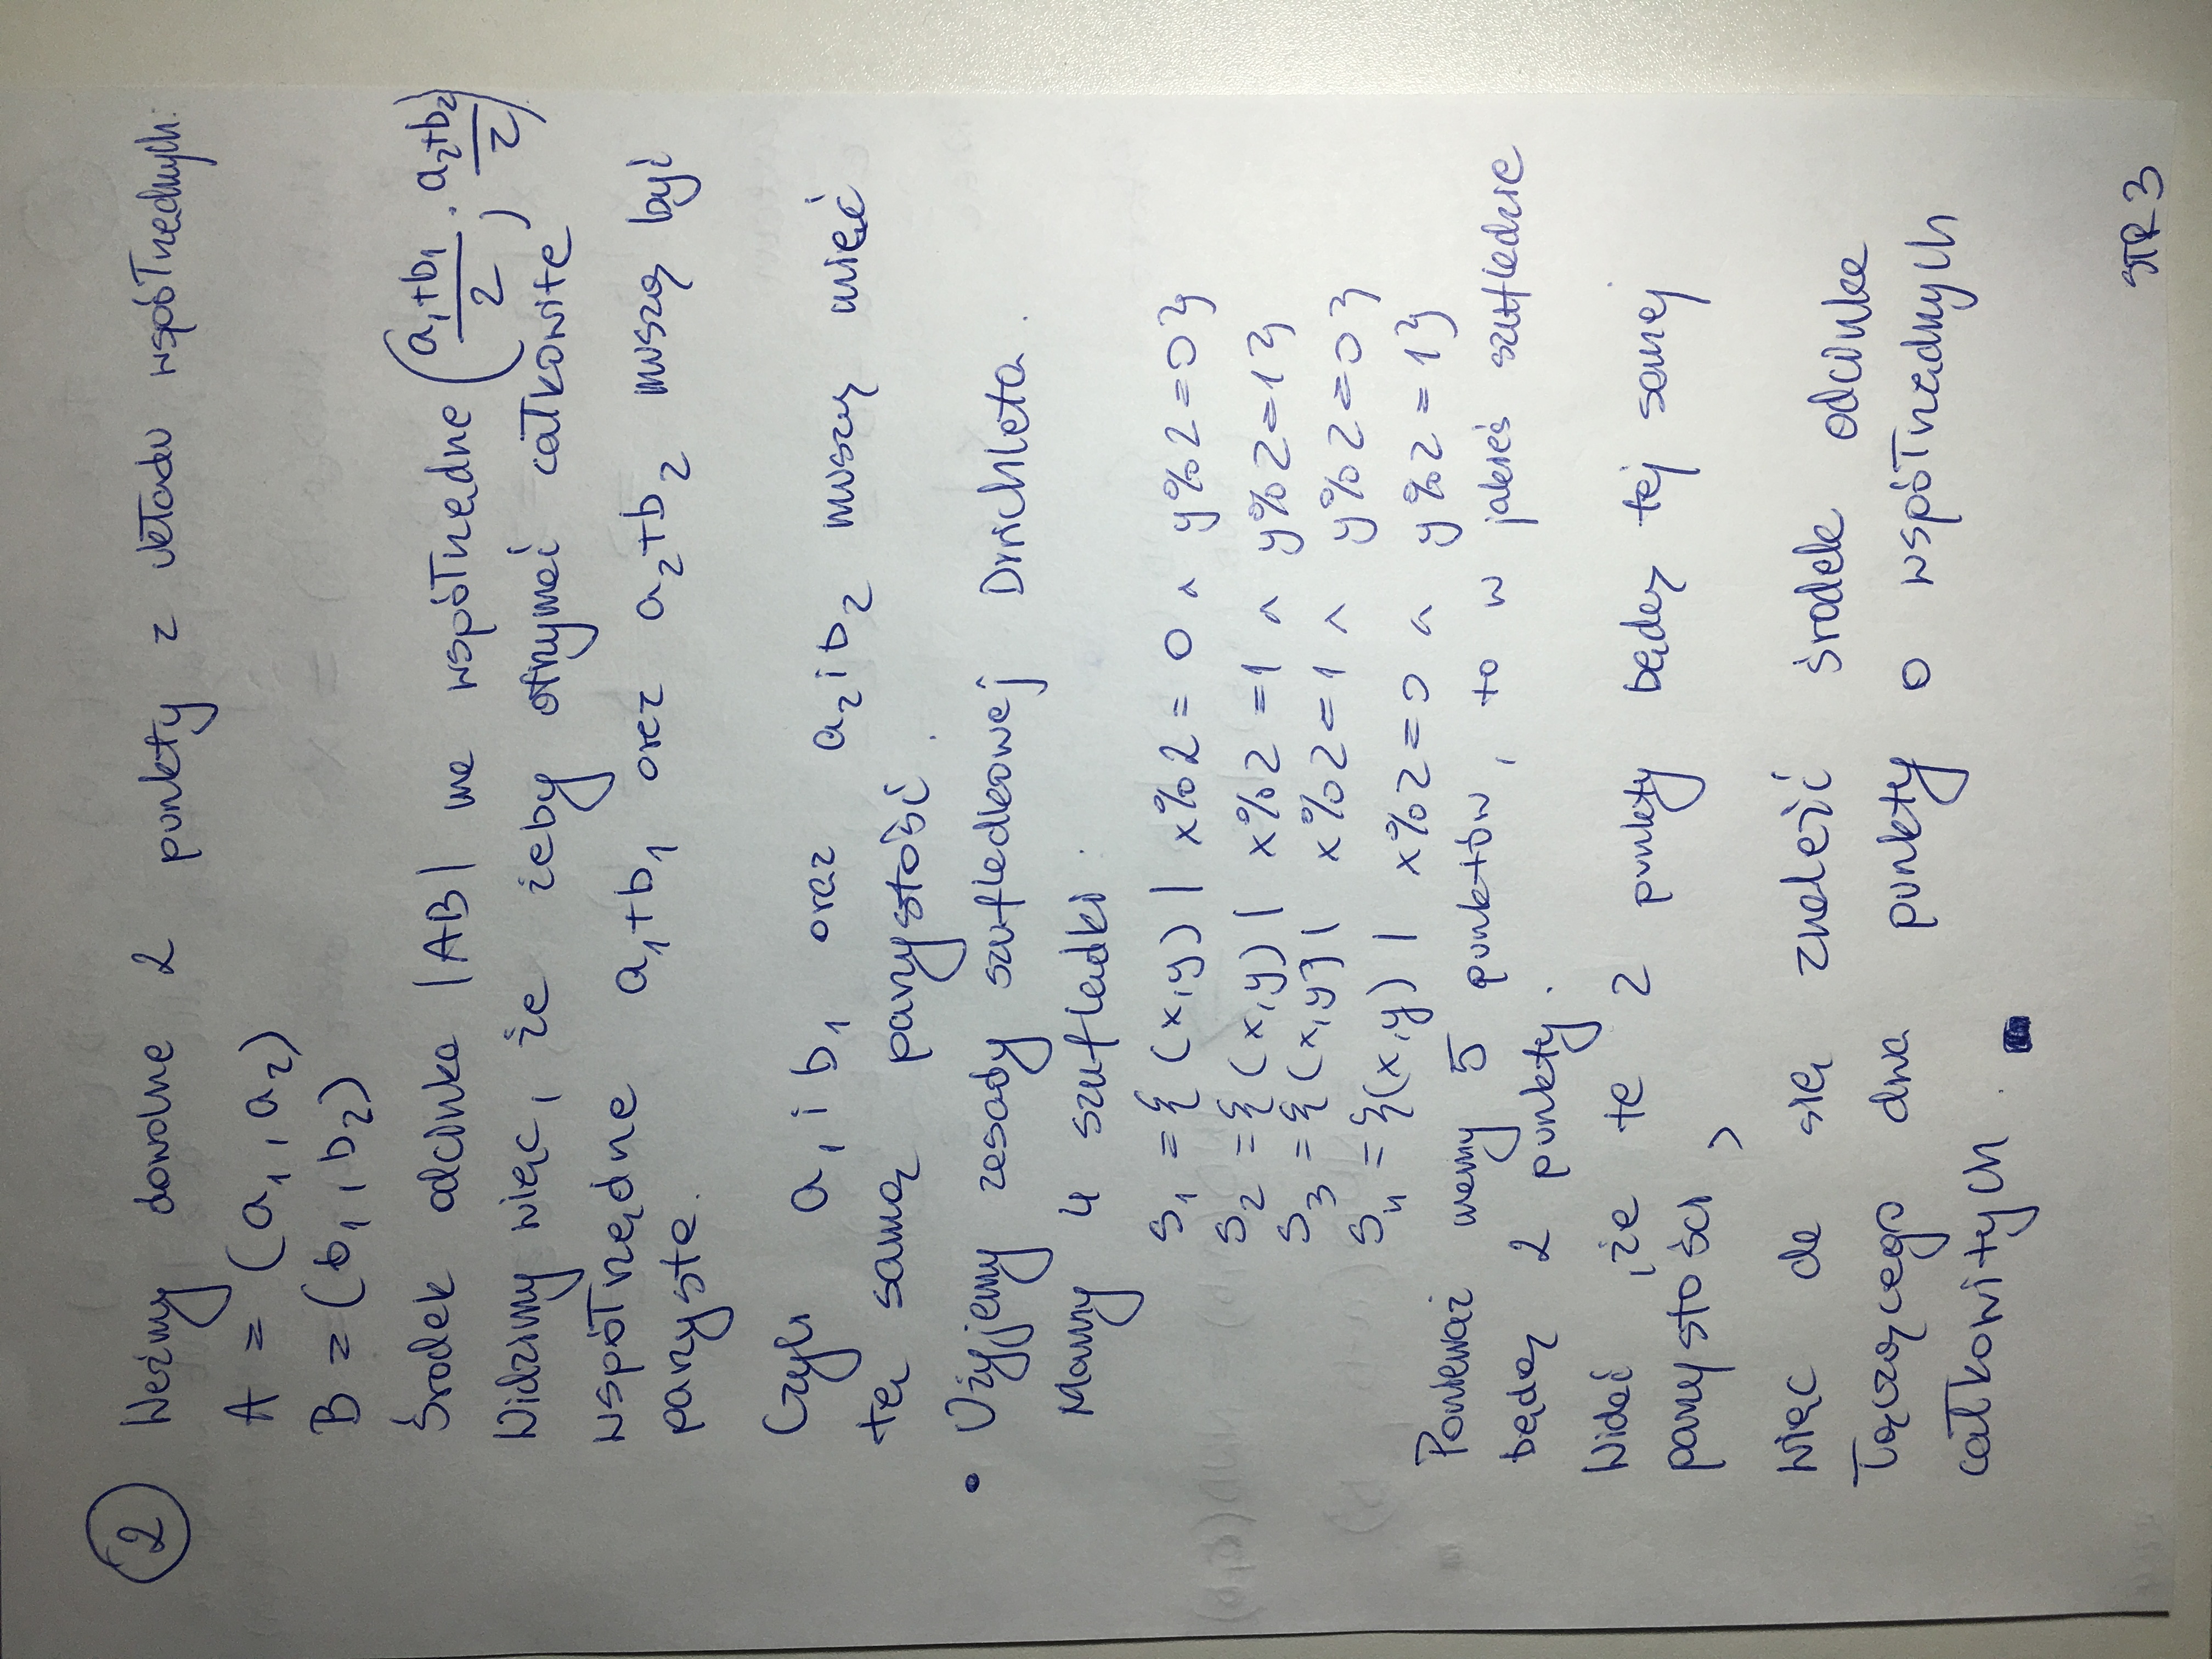 2 Weźmy dowolne 2 punkty z układu współrzędnych:
A = (a₁, a₂)
B = (b₁, b₂)
Środek odcinka |AB| ma współrzędne ((a₁+b₁)/2 ; (a₂+b₂)/2)
Widzimy więc, że żeby otrzymać całkowite
współrzędne a₁+b₁ oraz a₂+b₂ muszą być
parzyste.
Czyli a₁ i b₁ oraz a₂ i b₂ muszą mieć
tę samą parzystość.
• Użyjemy zasady szufladkowej Dirichleta.
Mamy 4 szufladki:
S₁ = {(x,y) | x%2 = 0 ∧ y%2=0}
S₂ = {(x,y) | x%2 =1 ∧ y%2=1}
S₃ = {(x,y) | x%2=1 ∧ y%2=0}
S₄ = {(x,y) | x%2=0 ∧ y%2=1}
Ponieważ mamy 5 punktów, to w jakieś szufladzie
będą 2 punkty.
Widać, że te 2 punkty będą tej samej
parzystości,
więc da się znaleźć środek odcinka
łączącego dwa punkty o współrzędnych
całkowitych.
STR 3